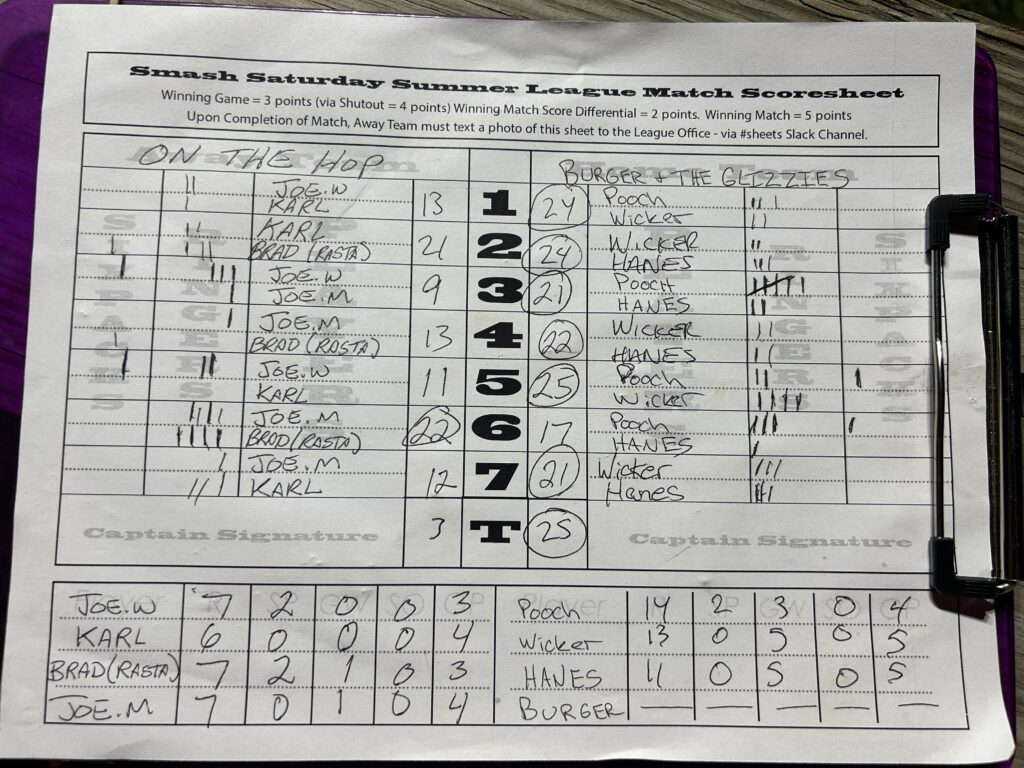 Smash Saturday Summer League Match Scoresheet
Winning Game = 3 points (via Shutout = 4 points) Winning Match Score Differential = 2 points. Winning Match = 5 points
Upon Completion of Match, Away Team must text a photo of this sheet to the League Office - via #sheets Slack Channel.
ON THE HOP BURGER + THE GLIZZIES
JOE.W 13 1 24 Pooch
KARL Wicker
KARL 21 2 24 WICKER
BRAD (RASTA) HANES
JOE.W 9 3 21 POOCH
JOE.M HANES
JOE.M 13 4 22 WICKER
BRAD (RASTA) HANES
JOE.W 11 5 25 Pooch
KARL Wicker
JOE.M 22 6 17 Pooch
BRAD(RASTA) HANES
JOE.M 12 7 21 Wicker
KARL Hanes
Captain Signature 3 T 25 Captain Signature
JOE.W 7 2 0 0 3 Pooch 14 2 3 0 4
KARL 6 0 0 0 4 Wicker 13 0 5 0 5
BRAD(RASTA) 7 2 1 0 3 HANES 11 0 5 0 5
JOE.M 7 0 1 0 4 BURGER — — — — —